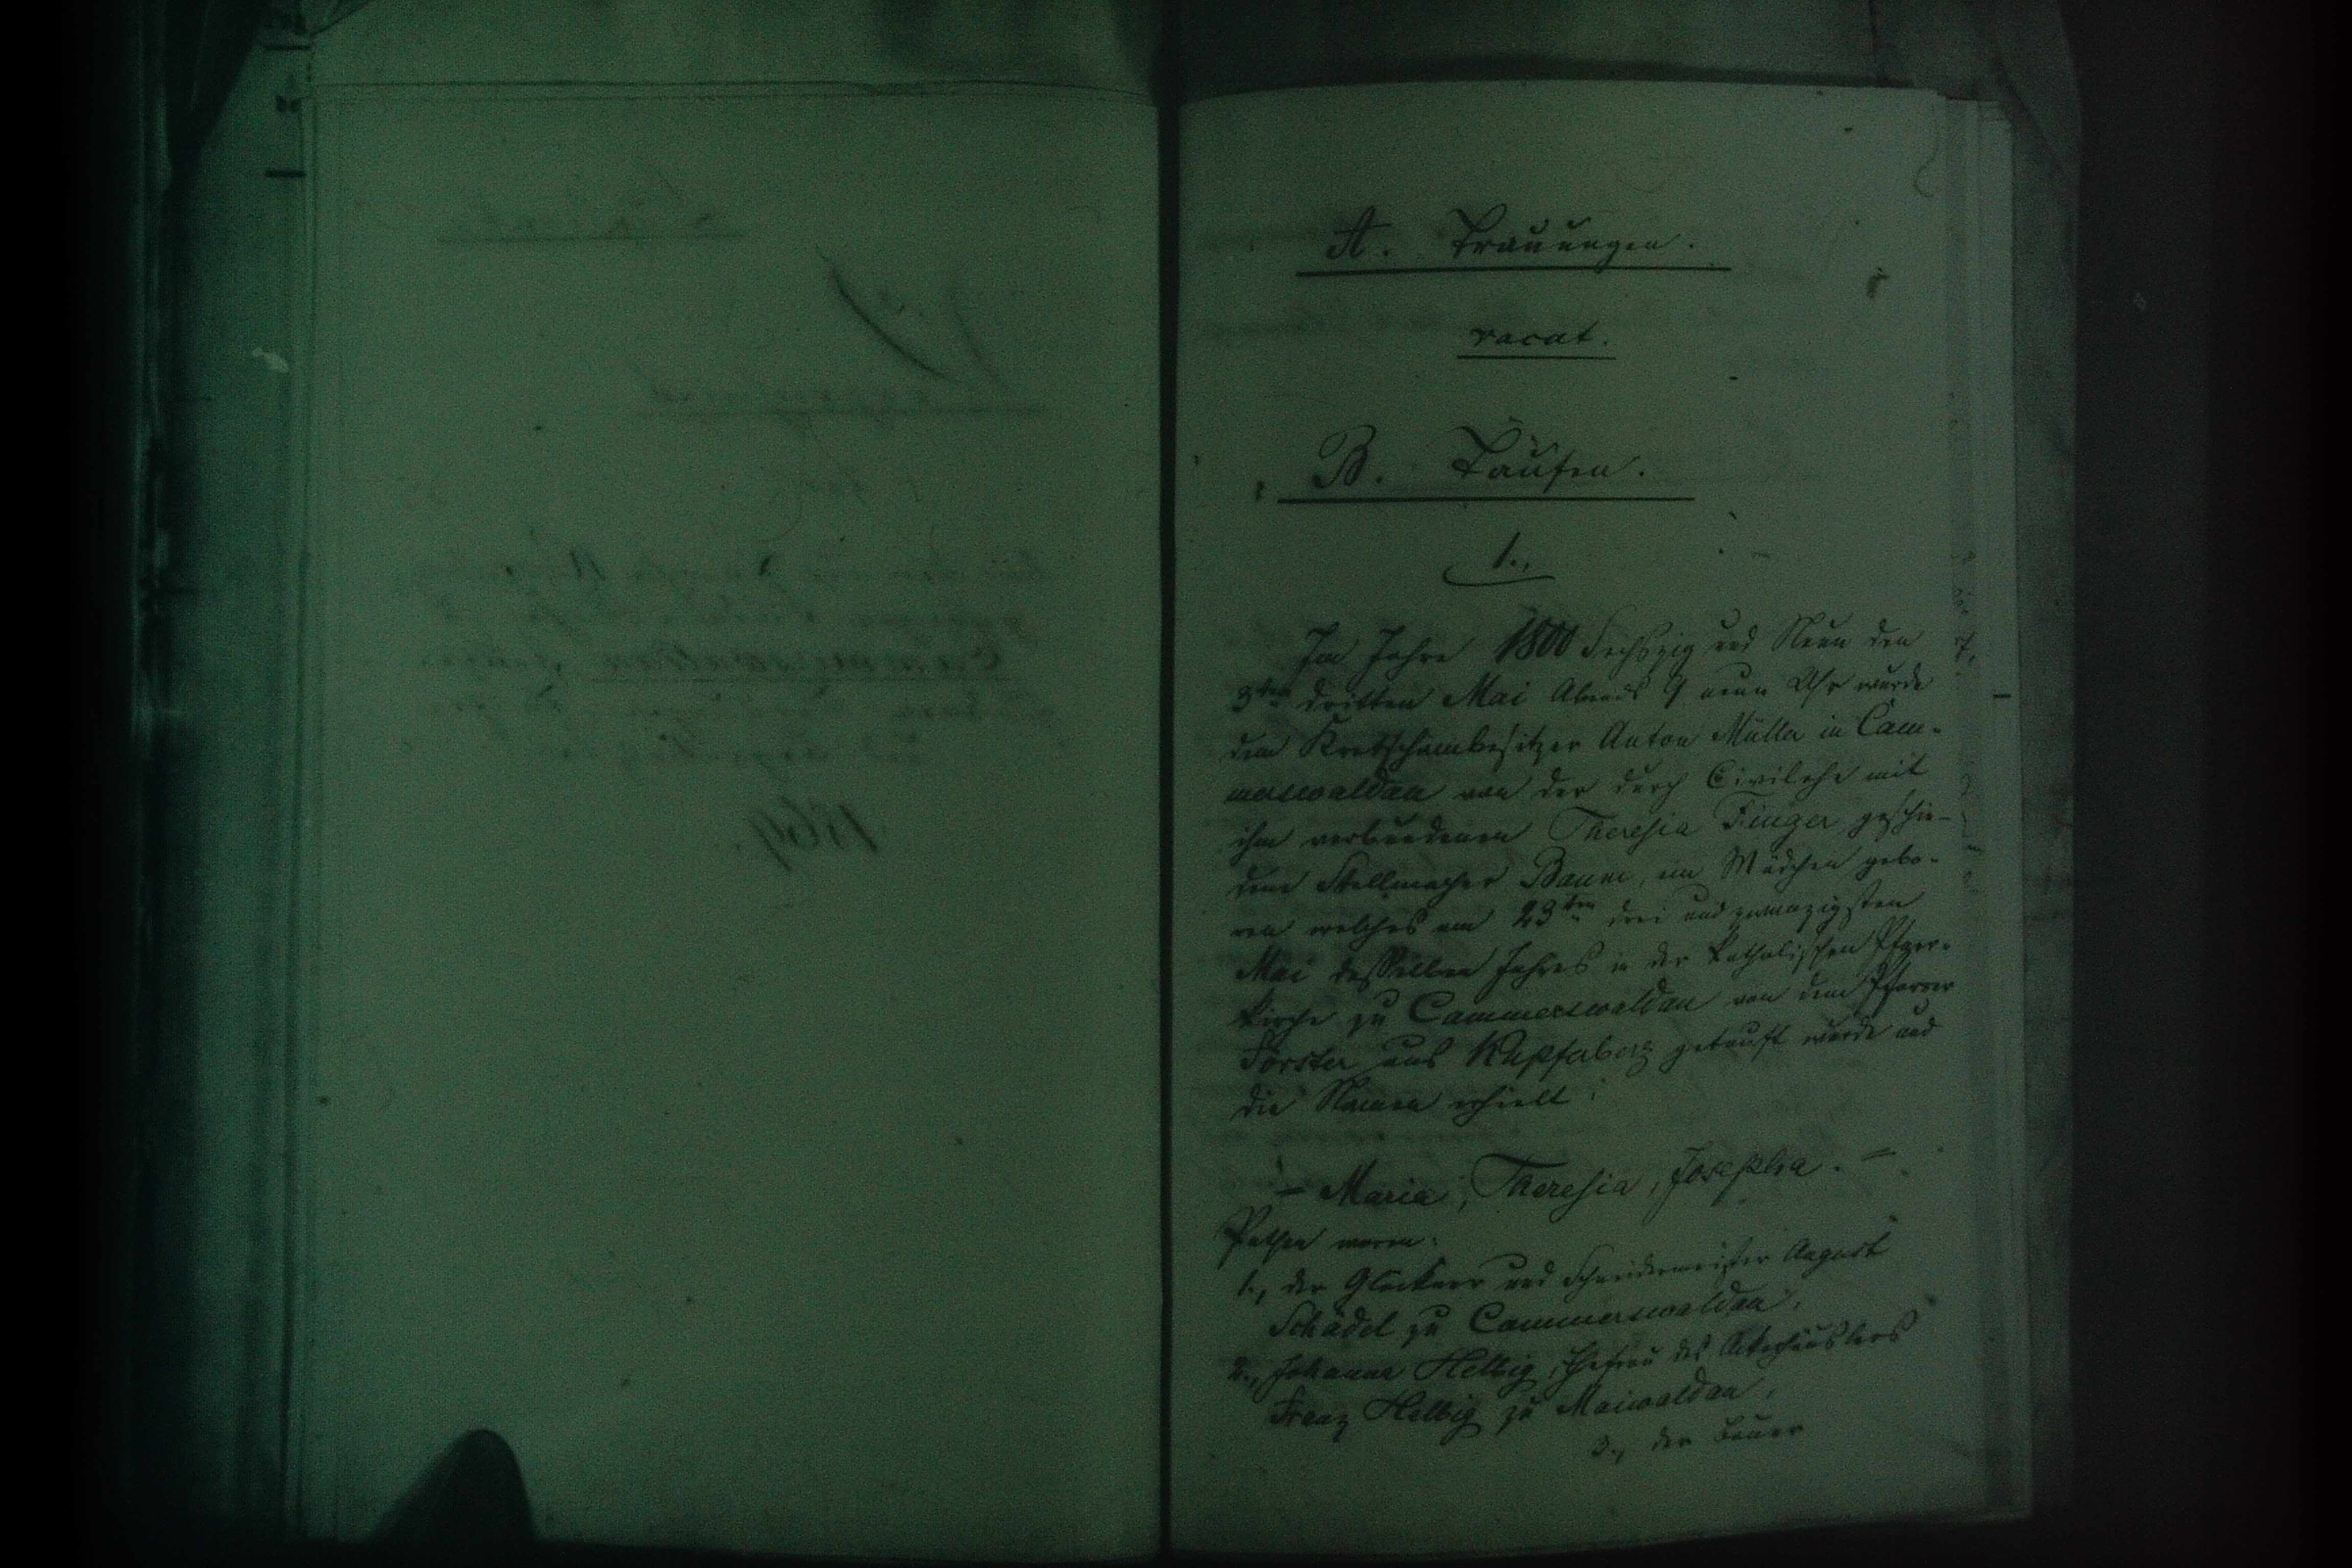 A. Trauungen.
vacat.
B. Taufen.
1.,
Im Jahre 1800 Sechszig und Neun den
3ten dritten Mai Abends 9 neun Uhr wurde
dem Kretschambesitzer Anton Müller in Cam-
merswaldau von der durch Civilehe mit
ihm verbundenen Theresia Finger geschie-
dene Stellmacher Baum, ein Mädchen gebo-
ren welches am 23ten drei und zwanzigsten
Mai desselben Jahres in der katholischen Pfarr-
kirche zu Cammerswaldau von dem Pfarrer
Förster aus Kupferberg getauft wurde und
die Namen erhielt:
– Maria, Theresia, Josepha. –
Pathen waren:
1., der Glöckner und Schneidermeister August
Schädel zu Cammerswaldau,
2., Johanna Helbig, Ehefrau des Ackerhäuslers
Franz Helbig zu Maiwaldau,
3., der Bauer